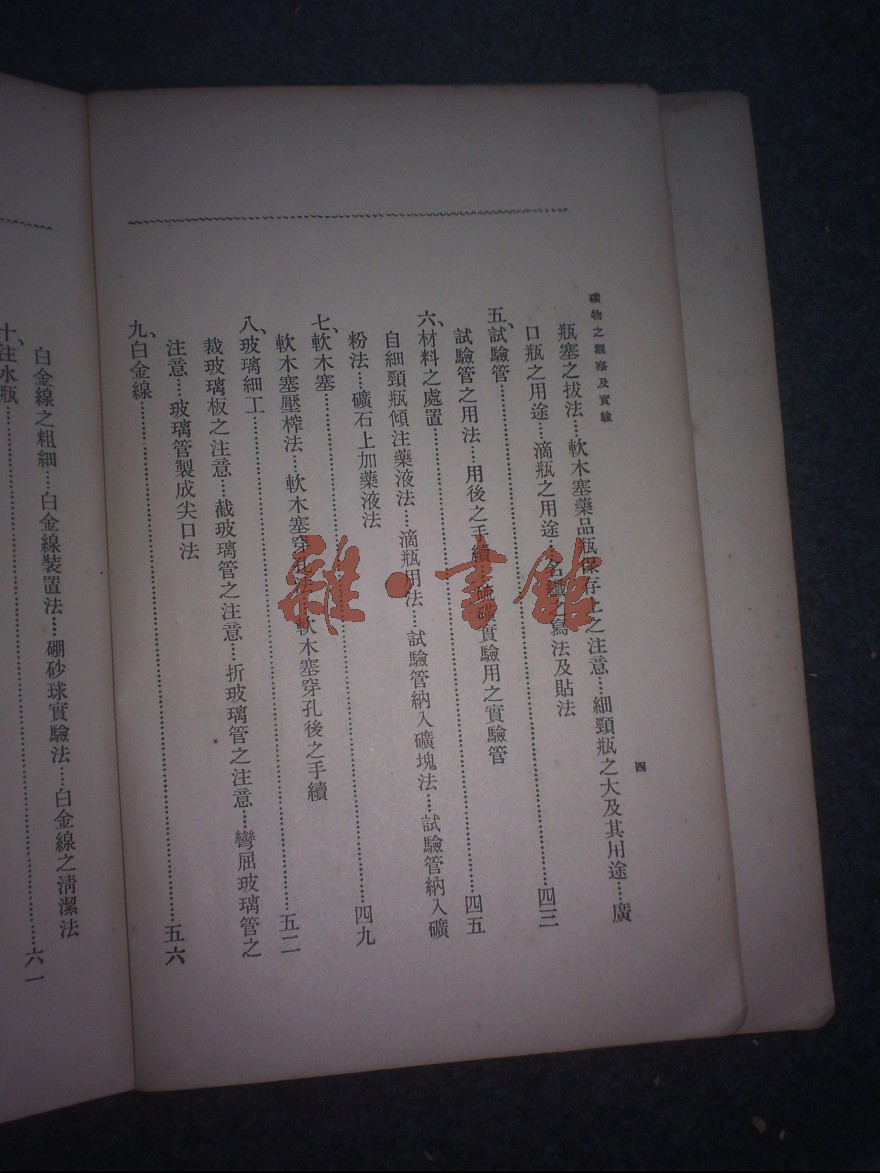 礦物之觀察及實驗
四
瓶塞之拔法…軟木塞藥品瓶保存上之注意…細頸瓶之大及其用途…廣
口瓶之用途…滴瓶之用途…名籤之寫法及貼法
五、試驗管……四三
試驗管之用法…用後之手續…硫礦實驗用之實驗管
六、材料之處置……四五
自細頸瓶傾注藥液法…滴瓶用法…試驗管納入礦塊法…試驗管納入礦
粉法…礦石上加藥液法
七、軟木塞……四九
軟木塞壓榨法…軟木塞穿孔法…軟木塞穿孔後之手續
八、玻璃細工……五二
裁玻璃板之注意…截玻璃管之注意…折玻璃管之注意…彎屈玻璃管之
注意…玻璃管製成尖口法
九、白金線……五六
白金線之粗細…白金線裝置法…硼砂球實驗法…白金線之清潔法
十、注水瓶……六一
雜·書館